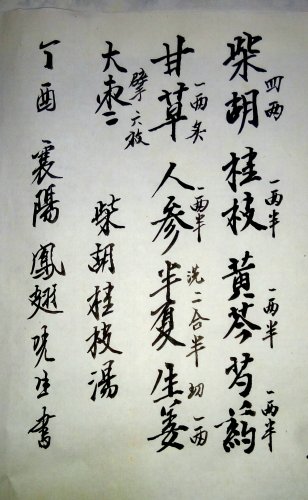 柴胡四两桂枝一两半黄芩一两半芍葯一两半
甘草一两炙人参一两半半夏洗二合半生姜切一两
大枣擘六枚 柴胡桂枝湯
丁酉 襄陽鳳翅生書